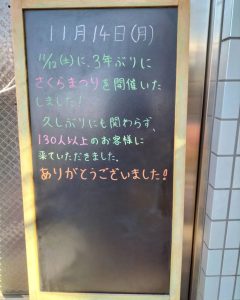 11月14日(月)
11/12(土)に、3年ぶりに
さくらまつりを開催いた
しました!
久しぶりにも関わらず、
130人以上のお客様に
来ていただきました。
ありがとうございました!